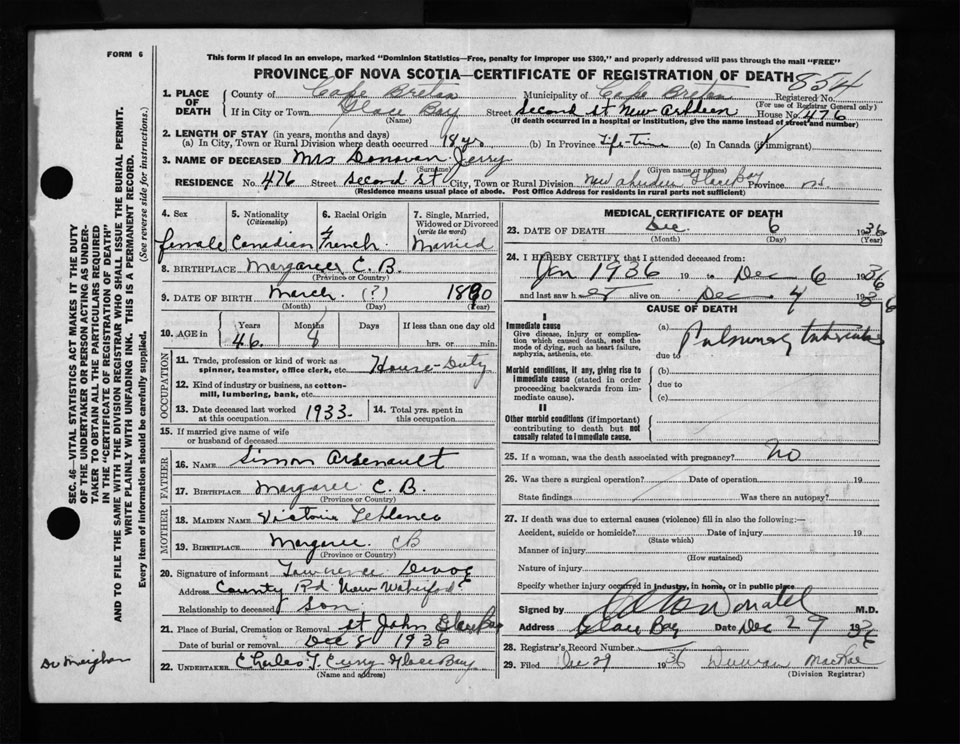 FORM 6
This form if placed in an envelope, marked "Dominion Statistics—Free, penalty for improper use $300," and properly addressed will pass through the mail "FREE"
PROVINCE OF NOVA SCOTIA—CERTIFICATE OF REGISTRATION OF DEATH 854
1. PLACE OF DEATH County of Cape Breton Municipality of Cape Breton Registered No.
(For use of Registrar General only)
If in City or Town Glace Bay Street Second St New House No. 476
(Name) (If death occurred in a hospital or institution, give the name instead of street and number)
2. LENGTH OF STAY (in years, months and days)
(a) In City, Town or Rural Division where death occurred 18 yrs (b) In Province Life-time (c) In Canada (if immigrant)
3. NAME OF DECEASED Mrs Donovan Jerry
(Surname) (Given name or names)
RESIDENCE No. 476 Street Second St City, Town or Rural Division New Glace Bay Province NS
(Residence means usual place of abode. Post Office Address for residents in rural parts not sufficient)
4. Sex female
5. Nationality (Citizenship) Canadian
6. Racial Origin French
7. Single, Married, Widowed or Divorced (write the word) Married
8. BIRTHPLACE Margaree C.B.
(Province or Country)
9. DATE OF BIRTH March (?) 1890
(Month) (Day) (Year)
10. AGE in Years 46 Months 8 Days If less than one day hrs. or min.
OCCUPATION
11. Trade, profession or kind of work as spinner, teamster, office clerk, etc. House-Duty
12. Kind of industry or business, as cotton-mill, lumbering, bank, etc.
13. Date deceased last worked at this occupation 1933
14. Total yrs. spent in this occupation
15. If married give name of wife or husband of deceased
FATHER
16. NAME Simon Arsenault
17. BIRTHPLACE Margaree C.B.
(Province or Country)
MOTHER
18. MAIDEN NAME Victoria Leblanc
19. BIRTHPLACE Margaree CB
(Province or Country)
20. Signature of informant Lawrence
Address County Rd New Waterford
Relationship to deceased Son
21. Place of Burial, Cremation or Removal St John Glace Bay
Date of burial or removal Dec 8 1936
22. UNDERTAKER Charles J. Curry Glace Bay
(Name and address)
MEDICAL CERTIFICATE OF DEATH
23. DATE OF DEATH Dec. 6 1936
(Month) (Day) (Year)
24. I HEREBY CERTIFY that I attended deceased from:
Jan 1936 19 to Dec 6 1936
and last saw her alive on Dec 4 1936
CAUSE OF DEATH
I
Immediate cause
Give disease, injury or complication which caused death, not the mode of dying, such as heart failure, asphyxia, asthenia, etc.
(a) Pulmonary tuberculosis
due to
Morbid conditions, if any, giving rise to immediate cause (stated in order proceeding backwards from immediate cause).
(b)
due to
(c)
II
Other morbid conditions (if important) contributing to death but not causally related to immediate cause.
25. If a woman, was the death associated with pregnancy? No
26. Was there a surgical operation? Date of operation 19
State findings Was there an autopsy?
27. If death was due to external causes (violence) fill in also the following:—
Accident, suicide or homicide? Date of injury 19
(State which)
Manner of injury
(How sustained)
Nature of injury
Specify whether injury occurred in industry, in home, or in public place
Signed by M.D.
Address Glace Bay Date Dec 29 1936
28. Registrar's Record Number
29. Filed Dec 29 1936 MacRae
(Division Registrar)
SEC. 46—VITAL STATISTICS ACT MAKES IT THE DUTY
OF THE UNDERTAKER OR PERSON ACTING AS UNDER-
TAKER TO OBTAIN ALL THE PARTICULARS REQUIRED
IN THE "CERTIFICATE OF REGISTRATION OF DEATH"
AND TO FILE THE SAME WITH THE DIVISION REGISTRAR WHO SHALL ISSUE THE BURIAL PERMIT.
WRITE PLAINLY WITH UNFADING INK. THIS IS A PERMANENT RECORD.
Every item of information should be carefully supplied. (See reverse side for instructions.)
Dr Meighan